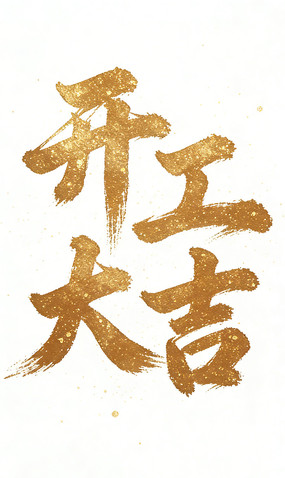 开工
大吉